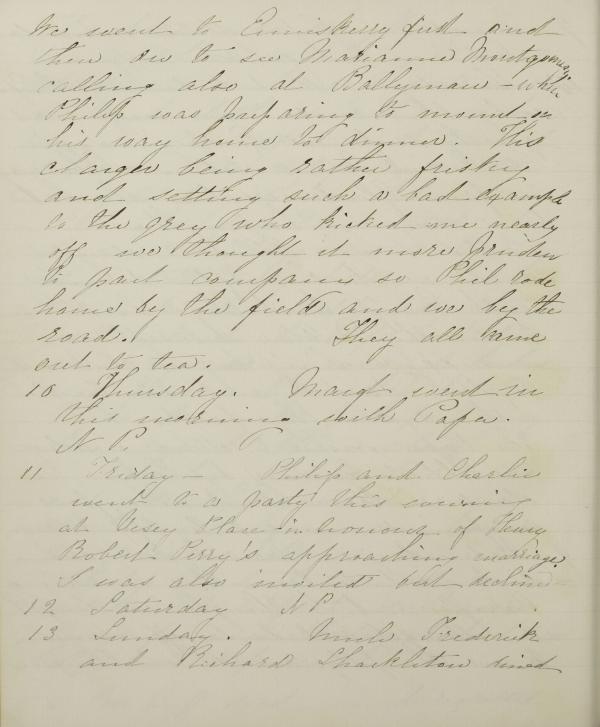 We went to Enniskerry first and
then on to see Marianne Montgomery
calling also at Ballyman - where
Philip was preparing to mount on
his way home to dinner. His
charger being rather frisky
and setting such a bad example
to the grey who kicked me nearly
off we thought it more pruden
to part company so Phil rode
home by the field and we by the
road. They all came
out to tea.
10 Thursday. Margt went in
this morning with Papa.
N P.
11 Friday - Philip and Charlie
went to a party this evening
at Vesey Place in honour of Henry
Robert Perry's approaching marriage.
I was also invited but declin-
12 Saturday N P
13 Sunday. Uncle Frederick
and Richard Shackleton dined